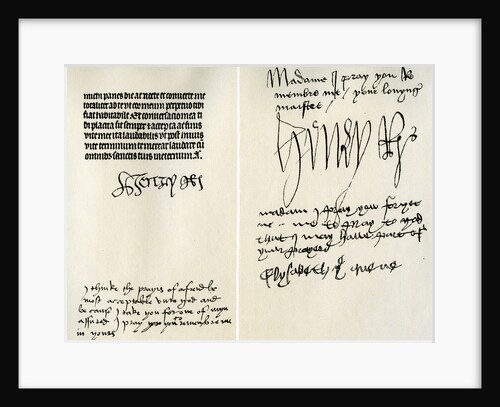 michi panes die ac nocte et converte me
totaliter ad te ut cor meum perpetuo tibi
fiat habitabile Et conversacio mea ti
bi placita sit semper et accepta ac finis
vite mee ita laudabilis ut post huius
vite terminum te merear laudare cu
omnibus sanctis tuis in eternum A.
Henry R
I thinke the prayrs of a frend be
most acceptable unto god and
be cause I take you for one of myn
assured I pray you remembre me
in yours
Madame I pray you Re
membre me youre lovyng
maister
Henry R
madam I pray you forget
not me to pray to god
that I may have part of
your prayers
Elysabeth ye quene